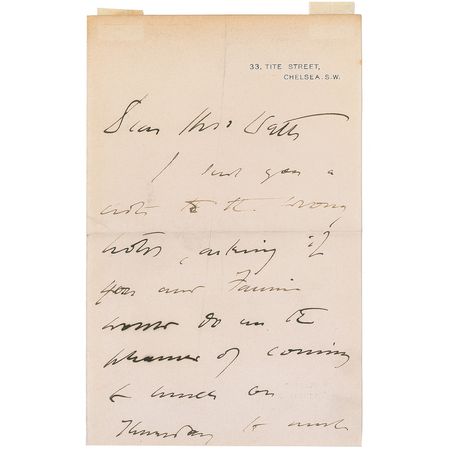 33, TITE STREET,
CHELSEA. S.W.
Dear Mrs Watts
I sent you a
note to the wrong
hotel, asking if
you and Fannie
would do me the
pleasure of coming
to lunch on
Thursday to meet